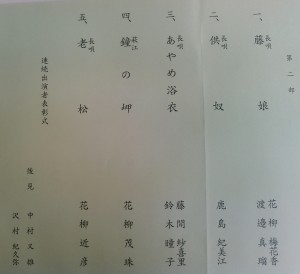 第二部
一、長唄 藤娘 花柳梅花香
渡邉真瑠
二、長唄 供奴 鹿島紀美江
三、長唄 あやめ浴衣 藤間紗喜里
鈴木瞳子
四、荻江 鐘の岬 花柳茂珠
五、長唄 老松 花柳近彦
連続出演者表彰式
後見 中村又雄
沢村紀久弥